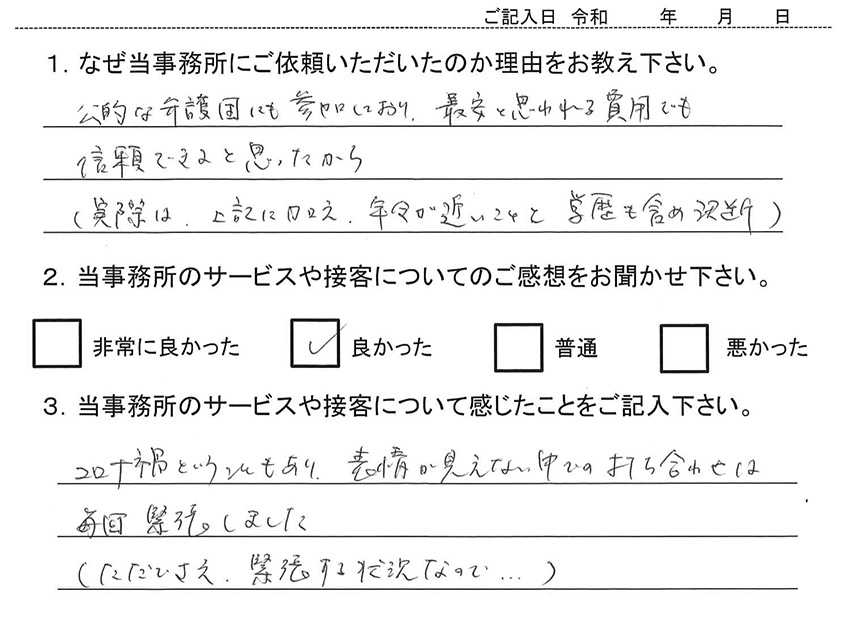 ご記入日 令和　　年　　月　　日
1．なぜ当事務所にご依頼いただいたのか理由をお教え下さい。
公的な弁護団にも参加しており、最安と思われる費用でも
信頼できると思ったから
(実際は、上記に加え、年令が近いことと学歴も含め決断)
2．当事務所のサービスや接客についてのご感想をお聞かせ下さい。
非常に良かった　良かった　普通　悪かった
3．当事務所のサービスや接客について感じたことをご記入下さい。
コロナ禍というのもあり、表情が見えない中での打ち合わせは
毎回緊張しました
(ただでさえ、緊張する状況なので…)